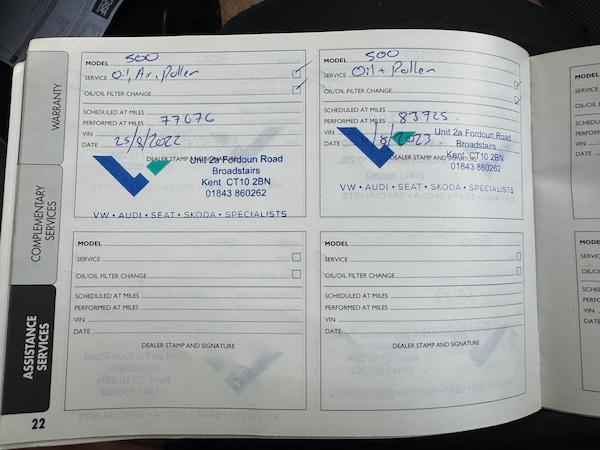 WARRANTY
COMPLEMENTARY SERVICES
ASSISTANCE SERVICES
22
MODEL 500
SERVICE Oil, Air, Pollen
OIL/OIL FILTER CHANGE
SCHEDULED AT MILES
PERFORMED AT MILES 77676
VIN
DATE 25/8/2022
DEALER STAMP AND SIGNATURE
Unit 2a Fordoun Road
Broadstairs
Kent CT10 2BN
01843 860262
VW • AUDI • SEAT • SKODA • SPECIALISTS
MODEL 500
SERVICE Oil + Pollen
OIL/OIL FILTER CHANGE
SCHEDULED AT MILES
PERFORMED AT MILES 83725.
VIN
DATE /8/2023
DEALER STAMP AND SIGNATURE
Unit 2a Fordoun Road
Broadstairs
Kent CT10 2BN
01843 860262
VW • AUDI • SEAT • SKODA • SPECIALISTS
MODEL
SERVICE
OIL/OIL FILTER CHANGE
SCHEDULED AT MILES
PERFORMED AT MILES
VIN
DATE
DEALER STAMP AND SIGNATURE
MODEL
SERVICE
OIL/OIL FILTER CHANGE
SCHEDULED AT MILES
PERFORMED AT MILES
VIN
DATE
DEALER STAMP AND SIGNATURE